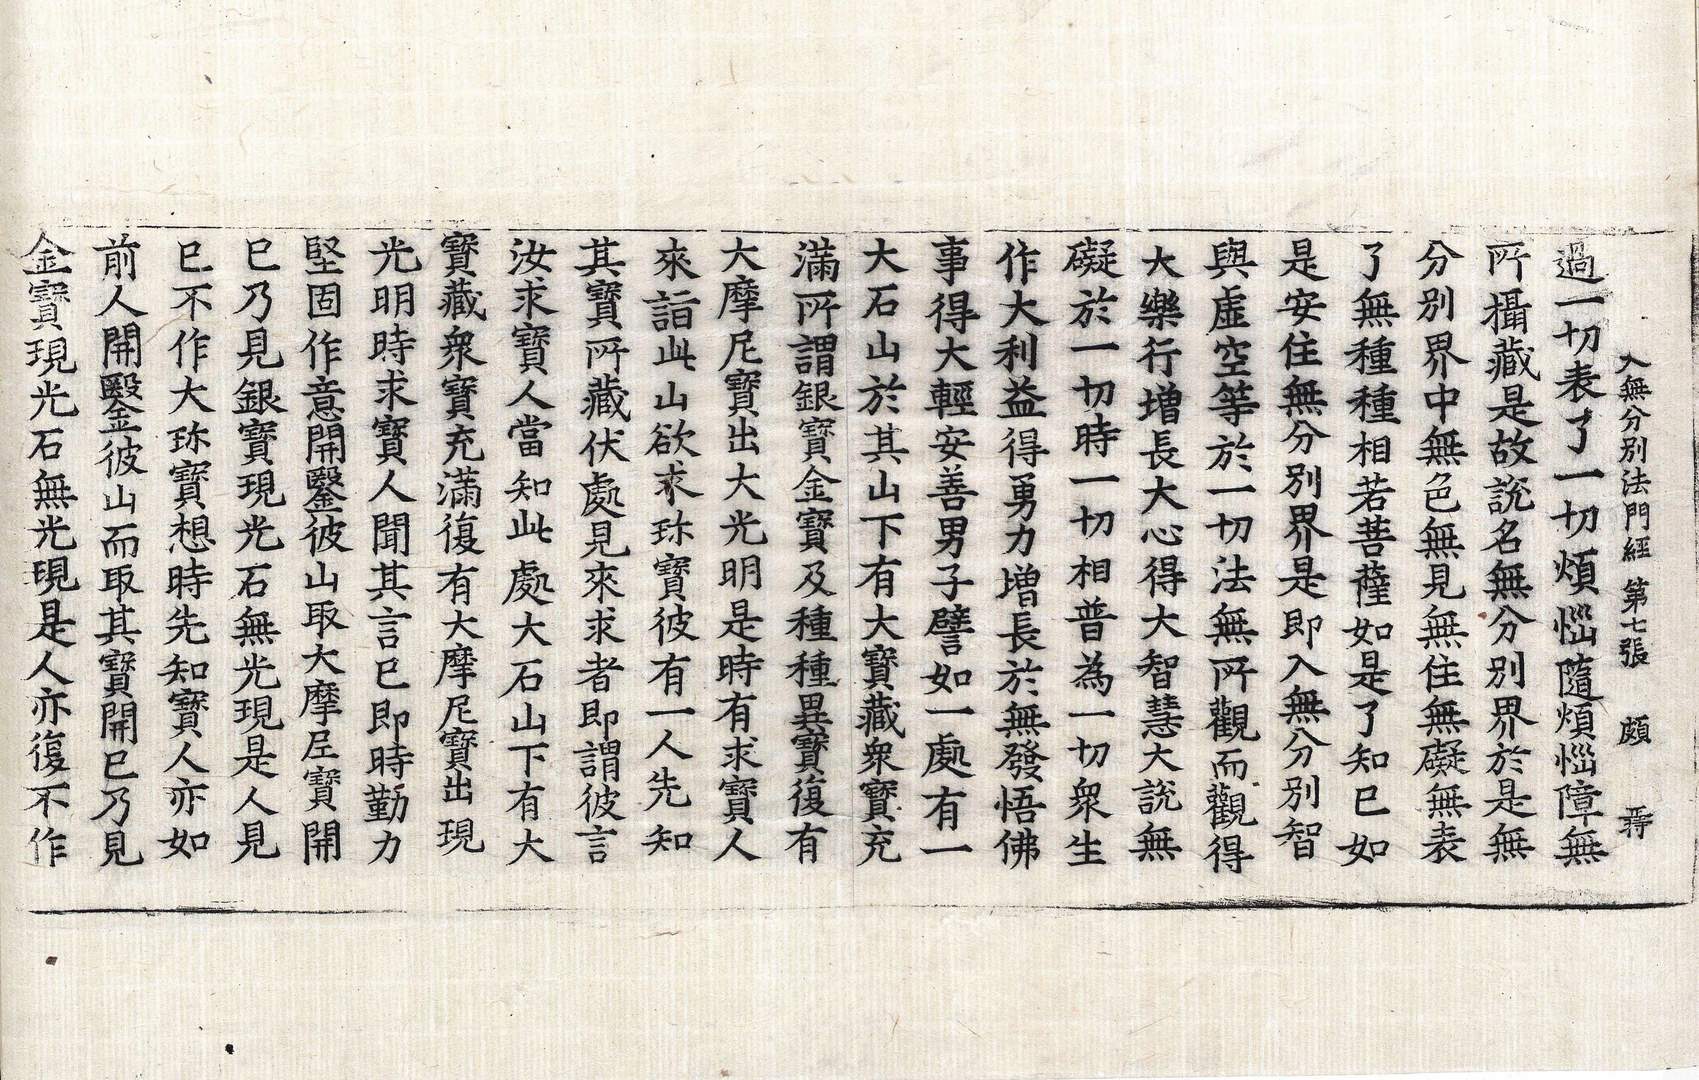 入無分別法門經 第七張 頗
過一切表了一切煩惱隨煩惱障無
所攝藏是故說名無分別界於是無
分別界中無色無見無住無礙無表
了無種種相若菩薩如是了知已如
是安住無分別界是即入無分別智
與虛空等於一切法無所觀而觀得
大樂行增長大心得大智慧大說無
礙於一切時一切相普為一切眾生
作大利益得勇力增長於無發悟佛
事得大輕安善男子譬如一處有一
大石山於其山下有大寶藏眾寶充
滿所謂銀寶金寶及種種異寶復有
大摩尼寶出大光明是時有求寶人
來詣此山欲求珎寶彼有一人先知
其寶所藏伏處見來求者即謂彼言
汝求寶人當知此處大石山下有大
寶藏眾寶充滿復有大摩尼寶出現
光明時求寶人聞其言已即時勤力
堅固作意開鑿彼山取大摩尼寶開
已乃見銀寶現光石無光現是人見
已不作大珎寶想時先知寶人亦如
前人開鑿彼山而取其寶開已乃見
金寶現光石無光現是人亦復不作